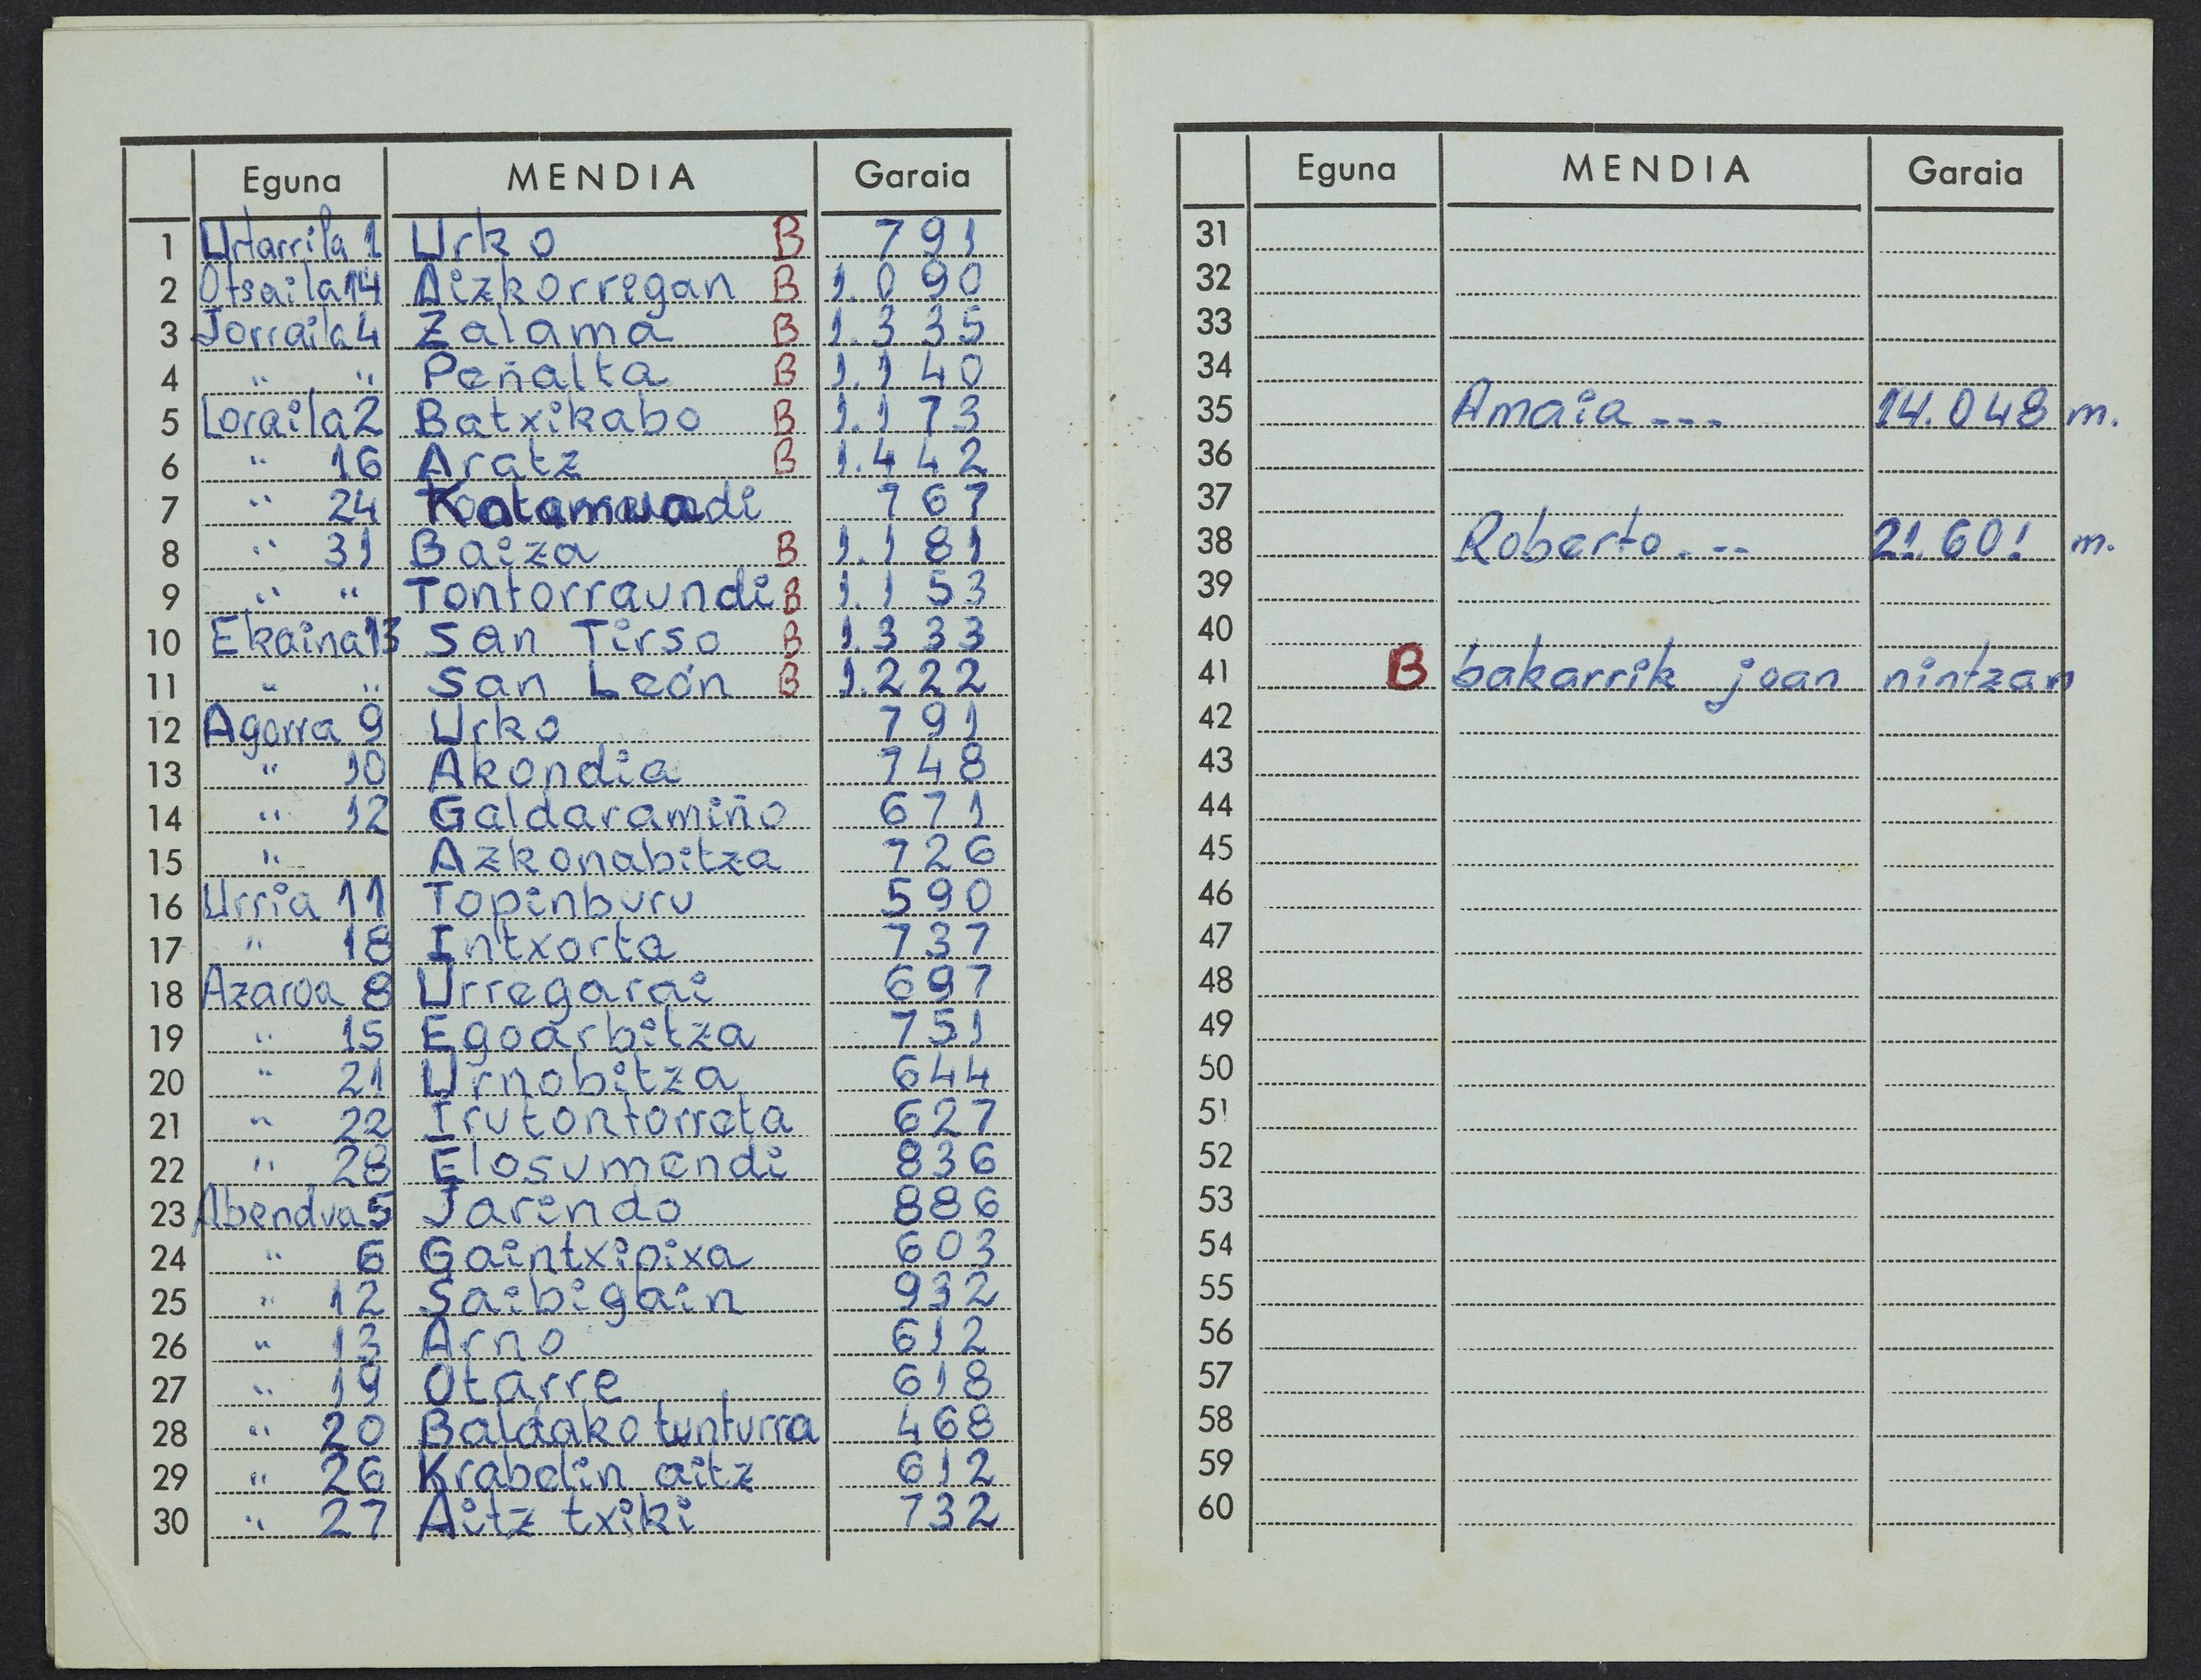 Eguna MENDIA Garaia
1 Urtarrila 1 Urko B 791
2 Otsaila 14 Aizkorrigan B 1.090
3 Jorraila 4 Zalama B 1.335
4 " " Peñalta B 1.140
5 Loraila 2 Batxikabo B 1.173
6 " 16 Aratz B 1.442
7 " 24 767
8 " 31 Baiza B 1.181
9 " " Tontorraundi B 1.153
10 Ekaina 13 San Tirso B 1.333
11 " " San León B 1.222
12 Agorra 9 Urko 791
13 " 10 Akondia 748
14 " 12 Galdaramiño 671
15 " Azkonabitza 726
16 Urria 11 Topinburu 590
17 " 18 Intxorta 737
18 Azaroa 8 Urregarai 697
19 " 15 Egoarbitza 751
20 " 21 Urnobitza 644
21 " 22 Irutontorreta 627
22 " 28 Elosumendi 836
23 Abendua 5 Jarindo 886
24 " 6 Gaintxipixa 603
25 " 12 Saibigain 932
26 " 13 Arno 612
27 " 19 Otarre 618
28 " 20 Baldako tunturra 468
29 " 26 Krabelin aitz 612
30 " 27 Aitz txiki 732
Eguna MENDIA Garaia
31
32
33
34
35 Amaia --- 14.048 m.
36
37
38 Roberto. -- 21.601 m.
39
40
41 B bakarrik joan nintzan
42
43
44
45
46
47
48
49
50
51
52
53
54
55
56
57
58
59
60